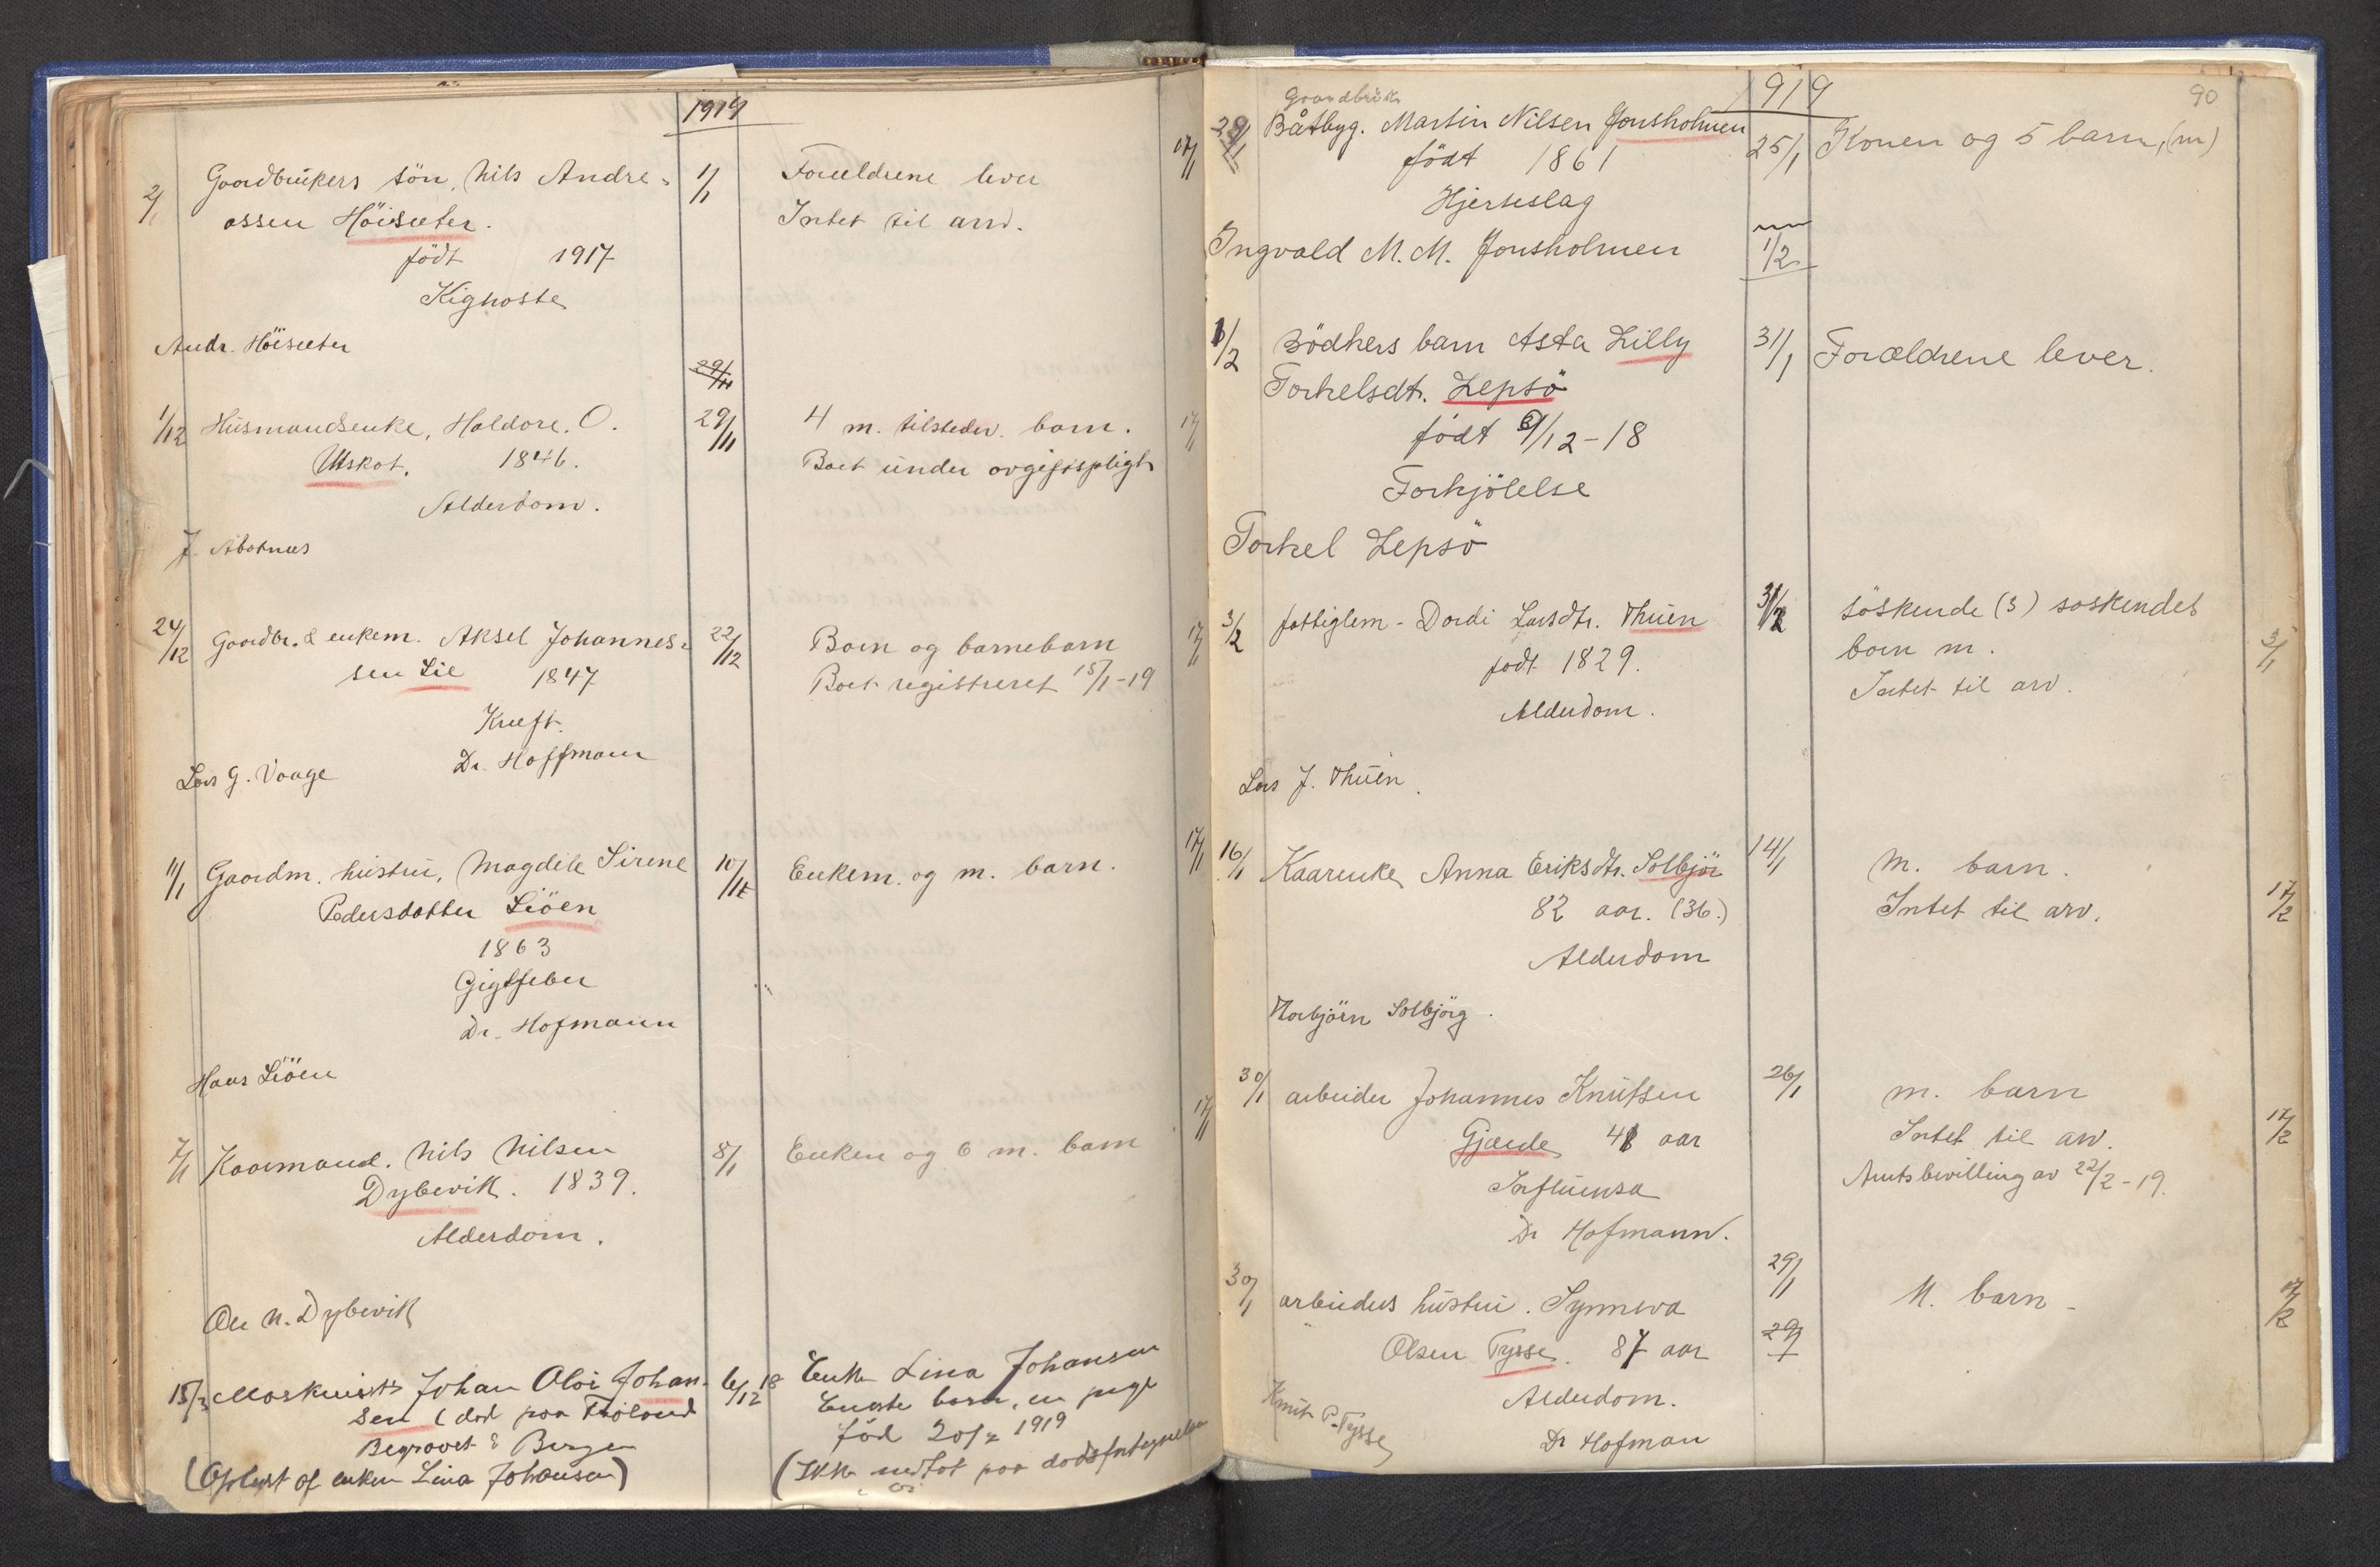 1919
2/1 Gaardbrukers sön, Nils Andre- 1/1 Forældrene lever
assen Höisæter. Intet til arv.
födt 1917
Kighoste
Andr. Höisæter
29/11
1/12 Husmandsenke, Haldore. O. 29/11 4 m. tilstedev. barn. 17/1
Utskot. 1846. Boet under avgiftspligt
Alderdom.
J. Abotnes
24/12 Gaardbr. & enkem. Aksel Johannes- 22/12 Barn og barnebarn 17/1
sen Lie 1847 Boet registreret 15/1-19
Kræft.
Dr. Hoffmann
Lars G. Vaage
11/1 Gaardm. hustru, Magdele Sirene 10/1 Enkem. og m. barn. 17/1
Pedersdatter Liöen
1863
Gigtfeber
Dr. Hofmann
Hans Liöen
7/1 Kaarmand. Nils Nilsen 8/1 Enken og 6 m. barn 17/1
Dybevik. 1839.
Alderdom.
Ole N. Dybevik
15/3 Maskinist Johan Olai Johan- 6/12 18 Enke Lina Johansen
sen (död paa Fröland Eneste barn, en pige
Begravet i Bergen föd 20/2 1919
(Oplyst af enken Lina Johansen) (Ikke medtat paa dödsfortegnelsen
1919 90
Gaardbruk
29/1 Båtbyg. Martin Nilsen Jonsholmen 25/1 Konen og 5 barn, (m)
17/1
födt 1861
Hjerteslag
Ingvald M. M. Jonsholmen 1/2
1/2 Bödkers barn Asta Lilly 31/1 Forældrene lever.
Torkelsdt. Lepsö
födt 9/12-18
Forkjölelse
Torkel Lepsö
3/2 fattiglem - Dordi Larsdtr. Thuen 31/1 söskende (3) söskendes
födt 1829. barn m. 3/1
Alderdom. Intet til arv.
Lars J. Thuen.
16/1 Kaarenke Anna Eriksdtr. Solbjör 14/1 m. barn.
82 aar. (36.) Intet til arv. 17/2
Alderdom
Thorbjörn Solbjörg.
30/1 arbeider Johannes Knutsen 26/1 m. barn
Gjærde 48 aar Intet til arv. 17/2
Influensa Amtsbevilling av 22/2-19.
Dr Hofmann.
30/1 arbeiders hustru. Synneva 29/1 M. barn - 17/2
Olsen Tysse. 87 aar 29/1
Alderdom.
Knut P. Tysse
Dr Hofman